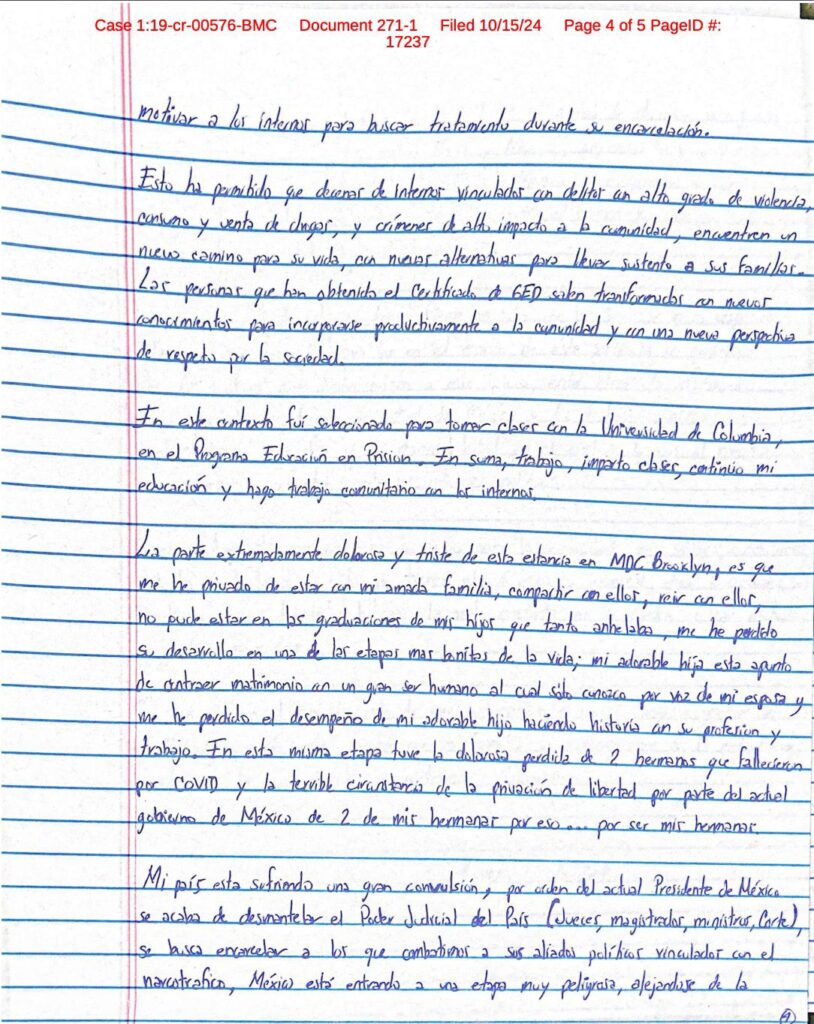 Case 1:19-cr-00576-BMC Document 271-1 Filed 10/15/24 Page 4 of 5 PageID #:
17237
motivar a los internos para buscar tratamiento durante su encarcelación.
Esto ha permitido que decenas de internos vinculados con delitos con alto grado de violencia,
consumo y venta de drogas, y crímenes de alto impacto a la comunidad, encuentren un
nuevo camino para su vida, con nuevas alternativas para llevar sustento a sus familias.
Las personas que han obtenido el Certificado de GED salen transformados con nuevos
conocimientos para incorporarse productivamente a la comunidad y con una nueva perspectiva
de respeto por la sociedad.
En este contexto fuí seleccionado para tomar clases con la Universidad de Columbia,
en el Programa Educación en Prision. En suma, trabajo, imparto clases, continúo mi
educación y hago trabajo comunitario con los internos.
La parte extremadamente dolorosa y triste de esta estancia en MDC Brooklyn, es que
me he privado de estar con mi amada familia, compartir con ellos, reir con ellos,
no pude estar en las graduaciones de mis hijos que tanto anhelaba, me he perdido
su desarrollo en una de las etapas mas bonitas de la vida; mi adorable hija esta apunto
de contraer matrimonio con un gran ser humano al cual sólo conozco por voz de mi esposa y
me he perdido el desempeño de mi adorable hijo haciendo historia con su profesion y
trabajo. En esta misma etapa tuve la dolorosa perdida de 2 hermanos que fallecieron
por COVID y la terrible circunstancia de la privación de libertad por parte del actual
gobierno de México de 2 de mis hermanas por eso... por ser mis hermanas.
Mi país esta sufriendo una gran convulsión, por orden del actual Presidente de México
se acaba de desmantelar el Poder Judicial del País (Jueces, magistrados, ministros, Corte),
se busca encarcelar a los que combatimos a sus aliados políticos vinculados con el
narcotrafico, México está entrando a una etapa muy peligrosa, alejandose de la
4